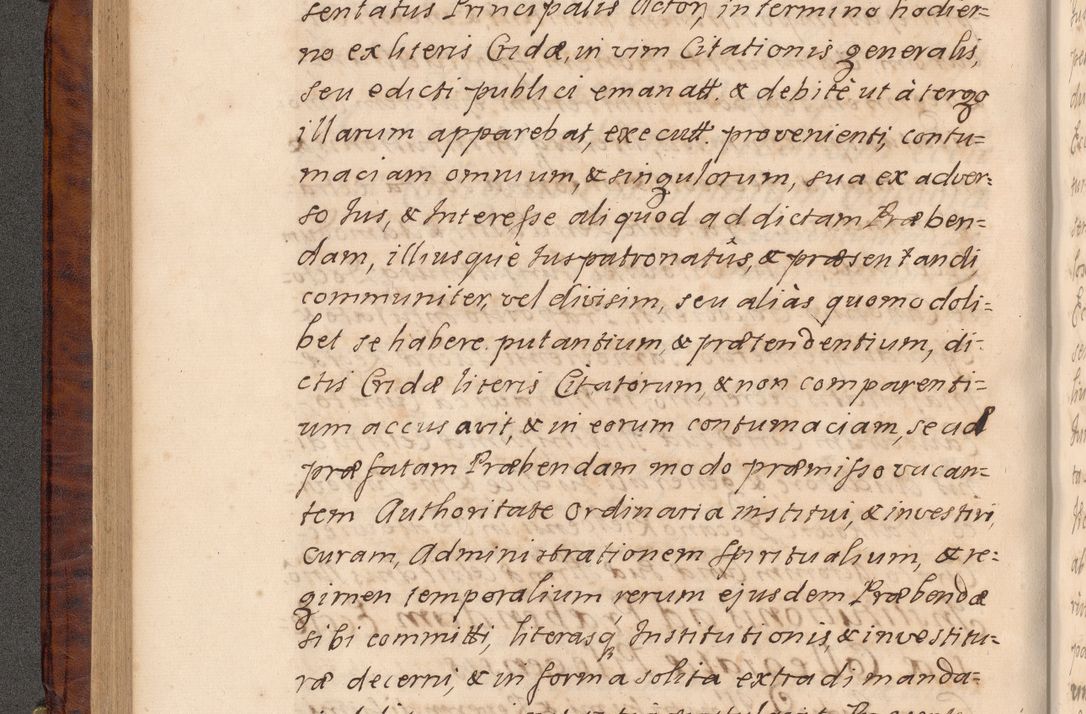 sentatus Principalis Actor, in termino hodier=
no ex literis Cridæ, in vim Citationis generalis,
seu edicti publici emanatt. & debitè ut à tergo
illarum apparebat, executt. provenienti, contu=
maciam omnium, & singulorum, sua ex adver=
so Jus, & Interesse aliquod ad dictam Præben=
dam, illiusquè Juspatronatûs, & præsentandi,
communiter, vel divisim, seu aliàs quomodoli=
bet se habere putantium, & prætendentium, di=
ctis Cridæ literis Citatorum, & non comparenti=
um accusavit, & in eorum contumaciam, se ad
præfatam Præbendam modo præmisso vacan=
tem Authoritate Ordinaria institui, & investiri,
curam, Administrationem spiritualium, & re=
gimen temporalium rerum ejusdem Præbendæ
sibi committi, literasq Institutionis, & investitu=
ræ decerni, & in forma solita extradi manda=